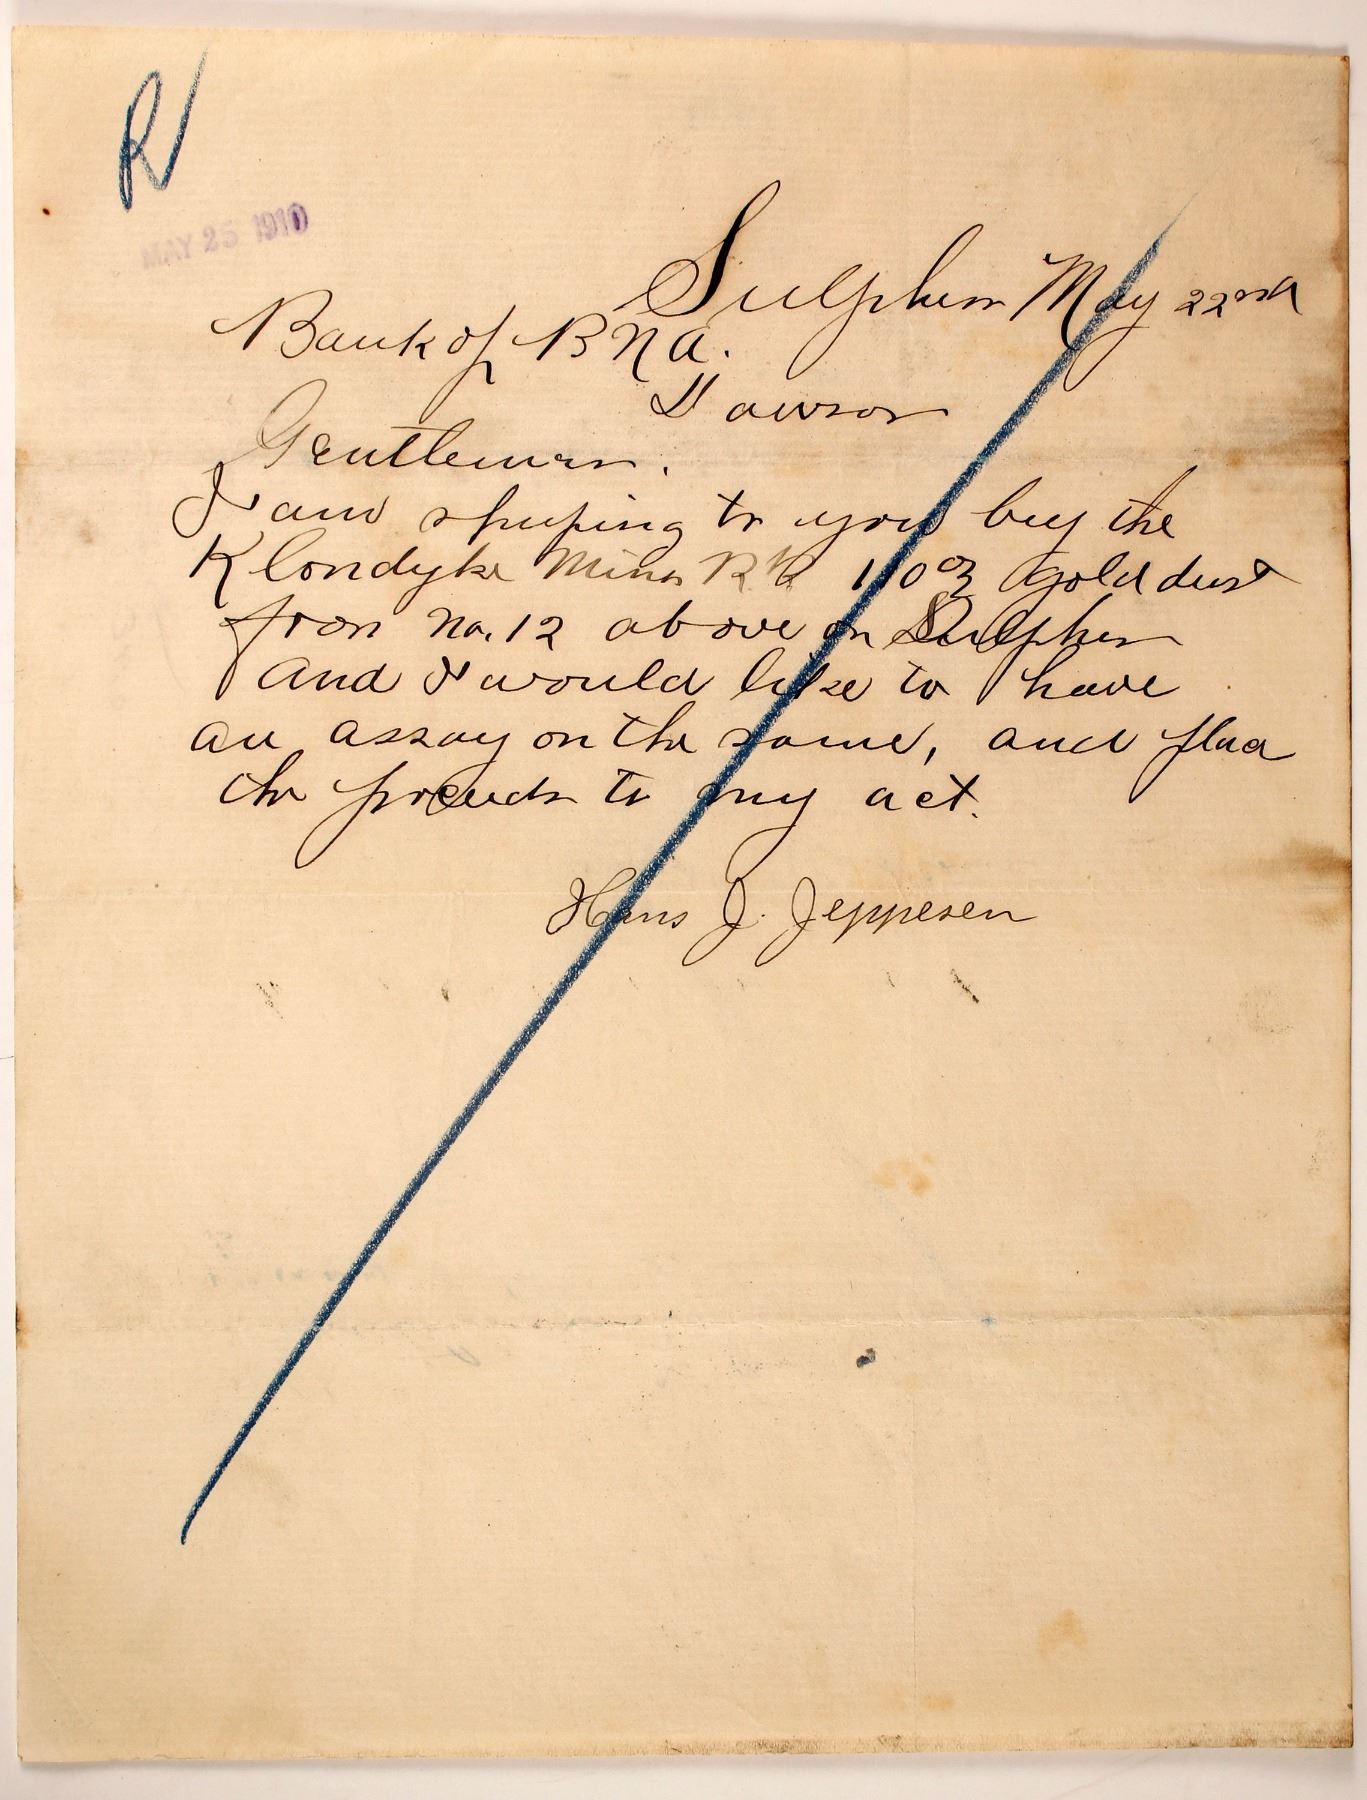 R
MAY 25 1910
Sulpher May 22nd
Bank of B N a.
Dawson
Gentlemen.
I am shiping to you buy the
Klondyke Mines R R 110 oz gold dust
from no. 12 above on Sulpher
and I would like to have
an assay on the same, and place
the proceeds to my act.
Hans J. Jeppesen